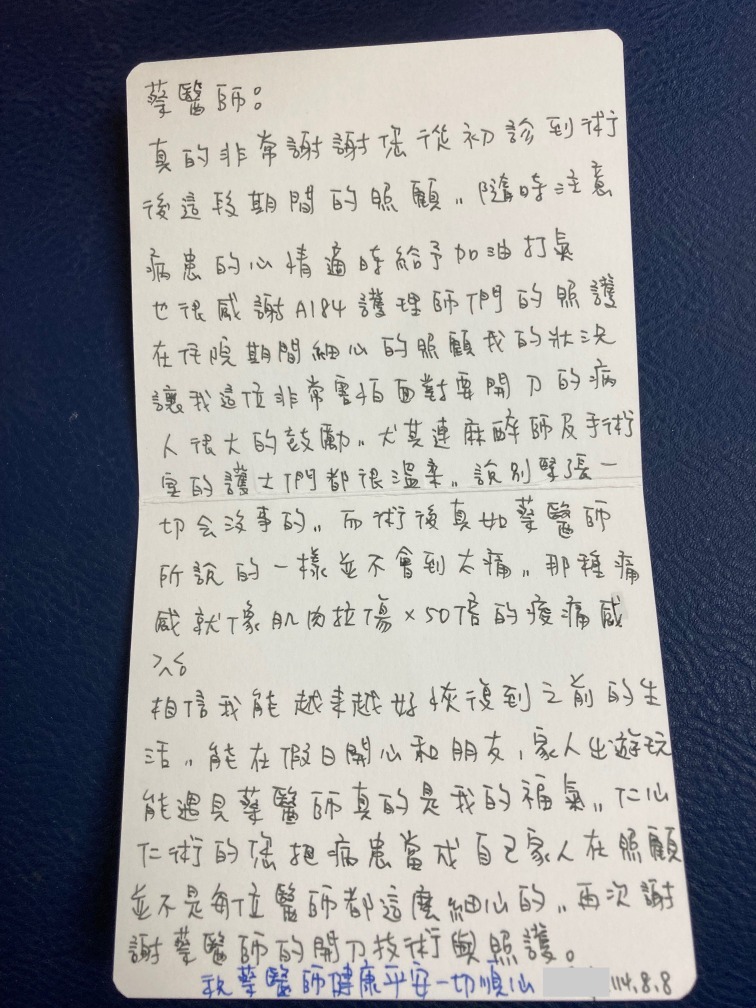 蔡醫師：
真的非常謝謝您從初診到術
後這段期間的照顧,, 隨時注意
病患的心情適時給予加油打氣
也很感謝A184護理師們的照護
在住院期間細心的照顧我的狀況
讓我這位非常害怕面對要開刀的病
人很大的鼓勵,, 尤其連麻醉師及手術
室的護士們都很溫柔,, 說別緊張一
切会沒事的,, 而術後真如蔡醫師
所說的一樣並不會到太痛,, 那種痛
感就像肌肉拉傷×50倍的痠痛感
相信我能越來越好恢復到之前的生
活,, 能在假日開心和朋友,家人出遊玩
能遇見蔡醫師真的是我的福氣,, 仁心
仁術的您把病患當成自己家人在照顧
並不是每位醫師都這麼細心的,, 再次謝
謝蔡醫師的開刀技術與照護。
祝蔡醫師健康平安一切順心 114.8.8